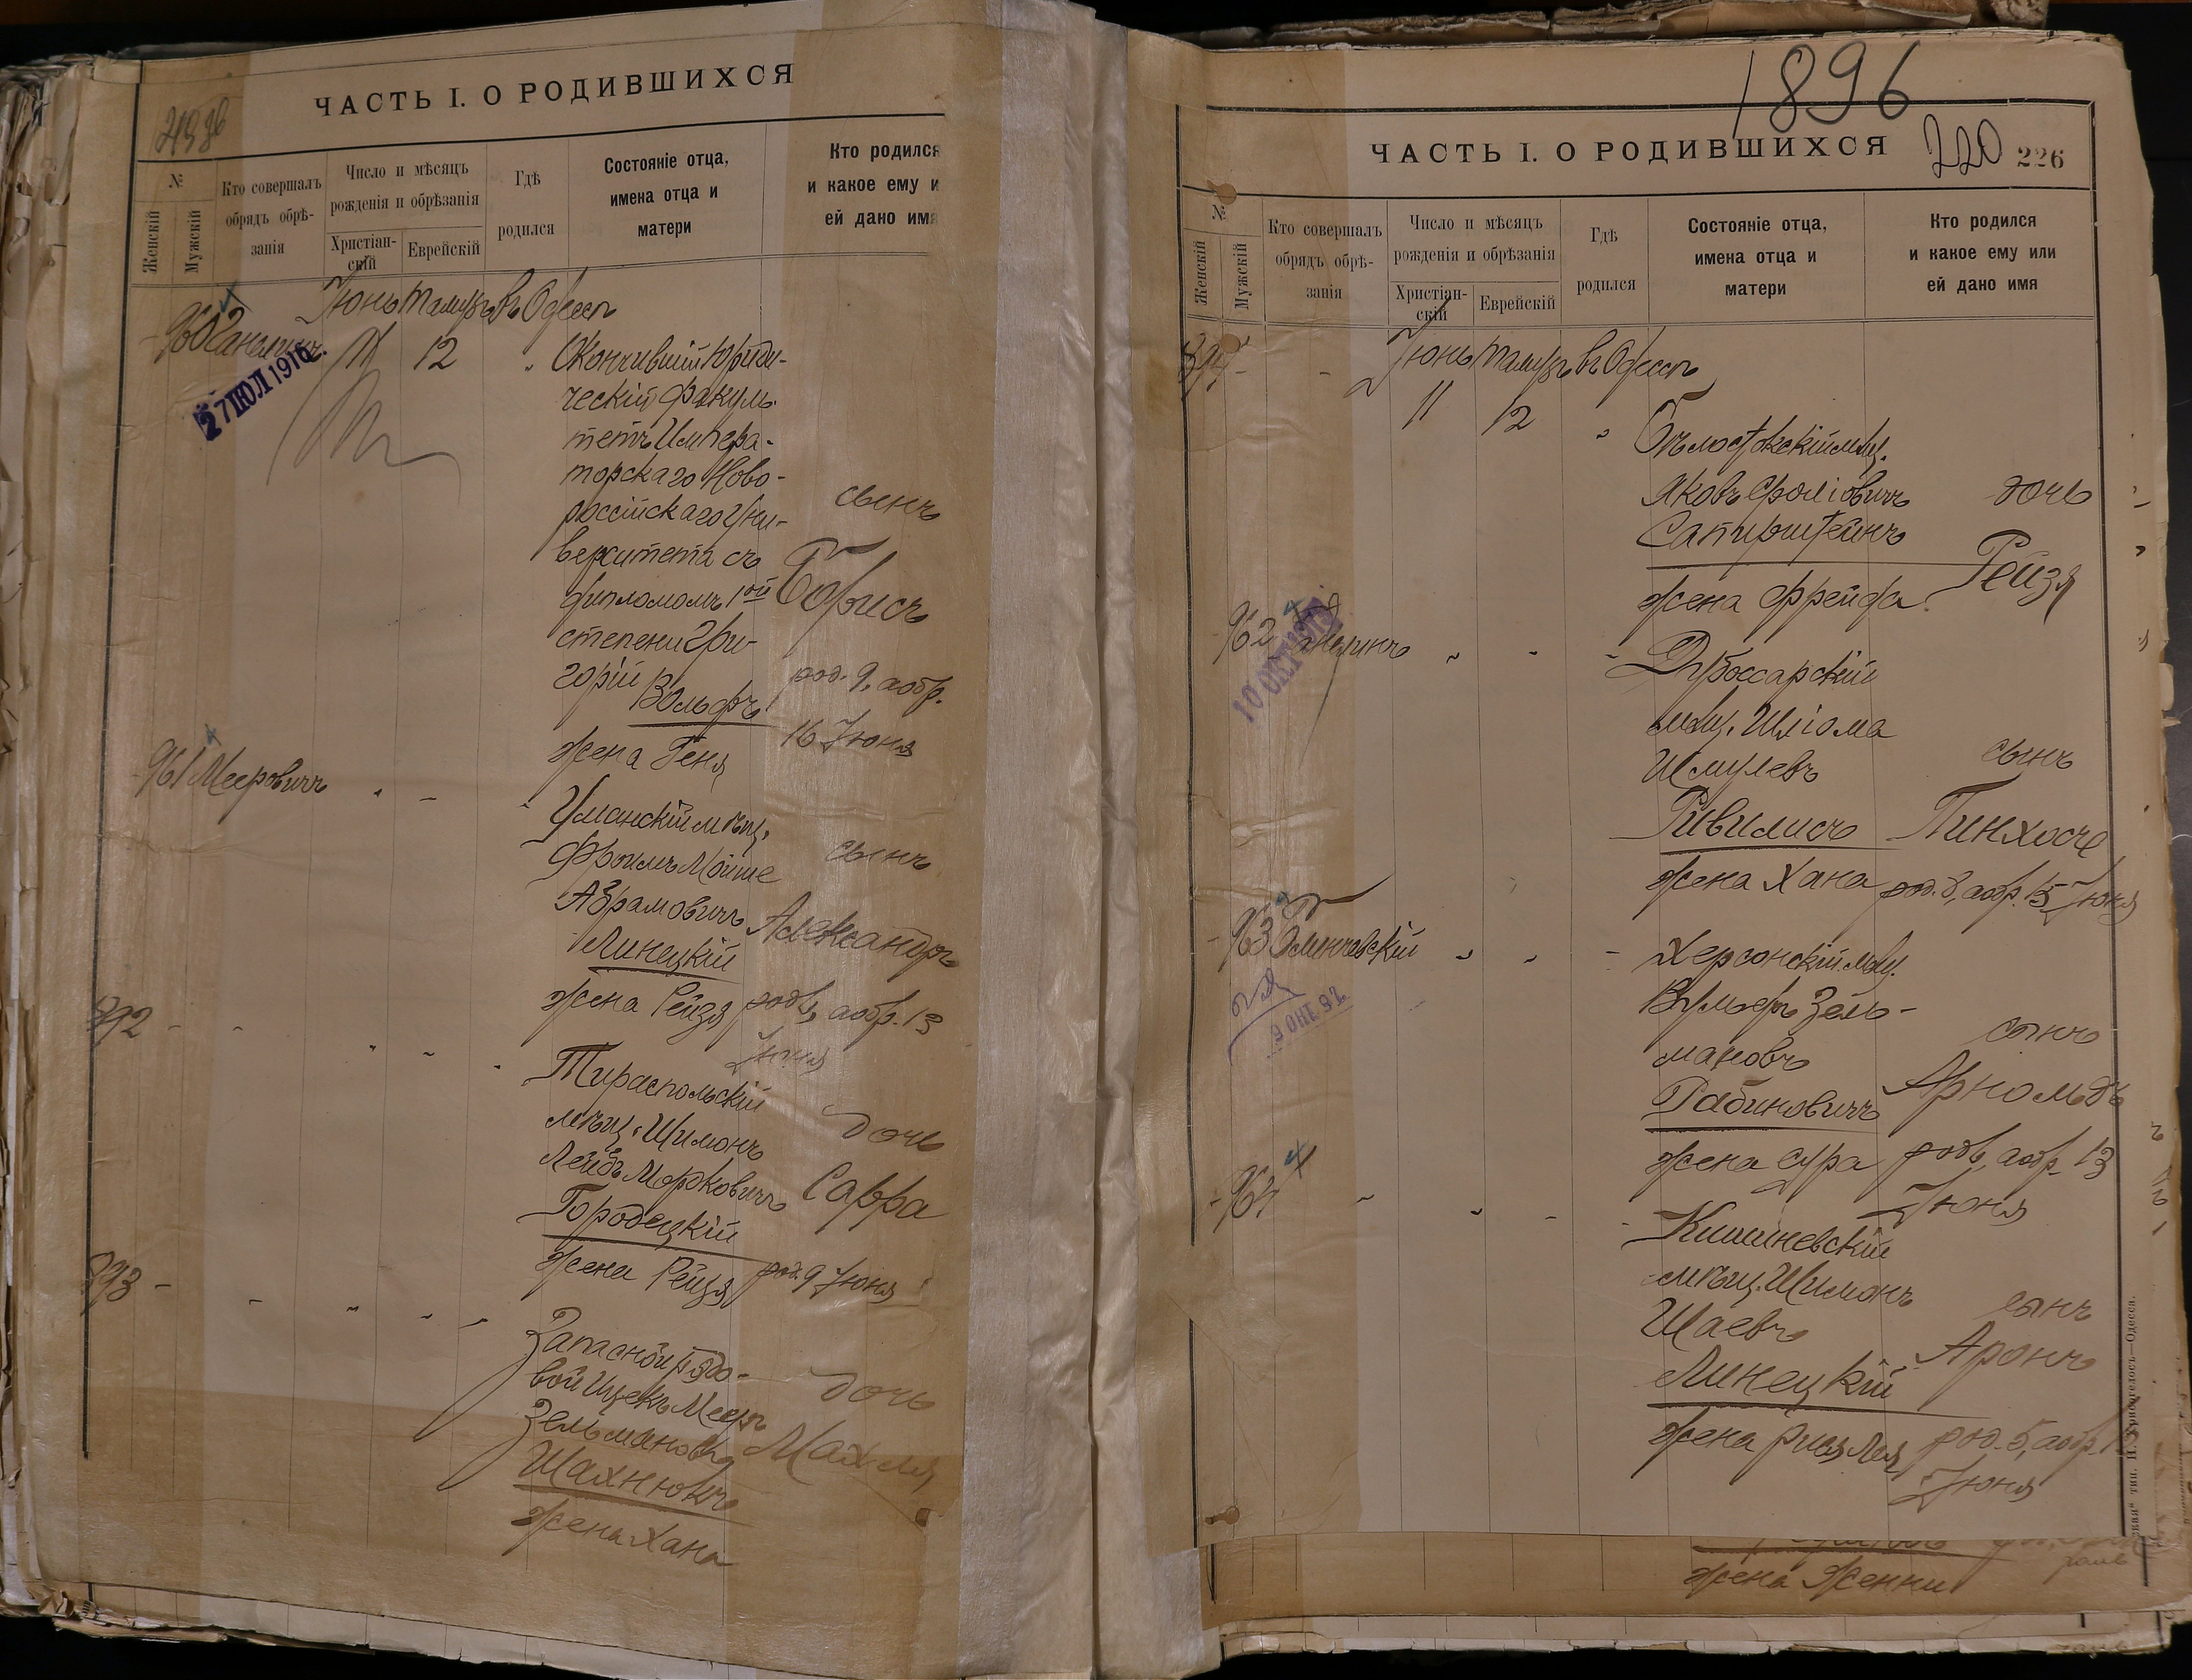 ЧАСТЬ I. О РОДИВШИХСЯ
№
Женскій
Мужскій
Кто совершалъ
обрядъ обрѣ-
занія
Число и мѣсяцъ
рожденія и обрѣзанія
Христіан-
скій
Еврейскій
Гдѣ
родился
Состояніе отца,
имена отца и
матери
Кто родился
и какое ему и
ей дано имя
Іюнь Тамузъ въ Одессѣ
960
27 ІЮЛ 1916
11 12 "
Окончившій Юриди-
ческій факуль-
тетъ Импера-
торскаго Ново-
россійскаго Уни-
верситета съ
дипломомъ 1ой
степени Гри-
горій Вольфъ
жена Геня
сынъ
Борисъ
род. 9, а обр.
16 Іюня
961 Мееровичъ " - "
Уманскій мѣщ.
Фроимъ Мойше
Абрамовичъ
Линецкій
жена Рейзя
сынъ
Александръ
род. 6, а обр. 13
Іюня
892 - - " - "
Тираспольскій
мѣщ. Шимонъ
Лейбъ Морковичъ
Городецкій
жена Рейзя
дочь
Сарра
род. 9 Іюня
893 - - " - -
Запасной рядо-
вой Ицекъ Мееръ
Зельмановъ
Шахнюкъ
жена Хана
дочь
Махля
1896
ЧАСТЬ I. О РОДИВШИХСЯ
220 226
№
Женскій
Мужскій
Кто совершалъ
обрядъ обрѣ-
занія
Число и мѣсяцъ
рожденія и обрѣзанія
Христіан-
скій
Еврейскій
Гдѣ
родился
Состояніе отца,
имена отца и
матери
Кто родился
и какое ему или
ей дано имя
894 - -
Іюнь Тамузъ въ Одессѣ
11 12 "
Бѣлостокскій мѣщ.
Яковъ Сролiовичъ
Сапирштейнъ
жена Фрейда
дочь
Рейзя
962 " - -
Дубоссарскій
мѣщ. Шліома
Шмулевъ
Ривилисъ
жена Хана
сынъ
Пинхосъ
род. 8, а обр. 15 Іюня
963 " " -
Херсонскій мѣщ.
Вульфъ Зель-
мановъ
Рабиновичъ
жена Сура
сынъ
Арнольдъ
род. 6, а обр. 13
Іюня
964 - " - -
Кишиневскій
мѣщ. Шимонъ
Шаевъ
Линецкій
жена Рися Лея
сынъ
Аронъ
род. 5, а обр.
Іюня
жена Женни